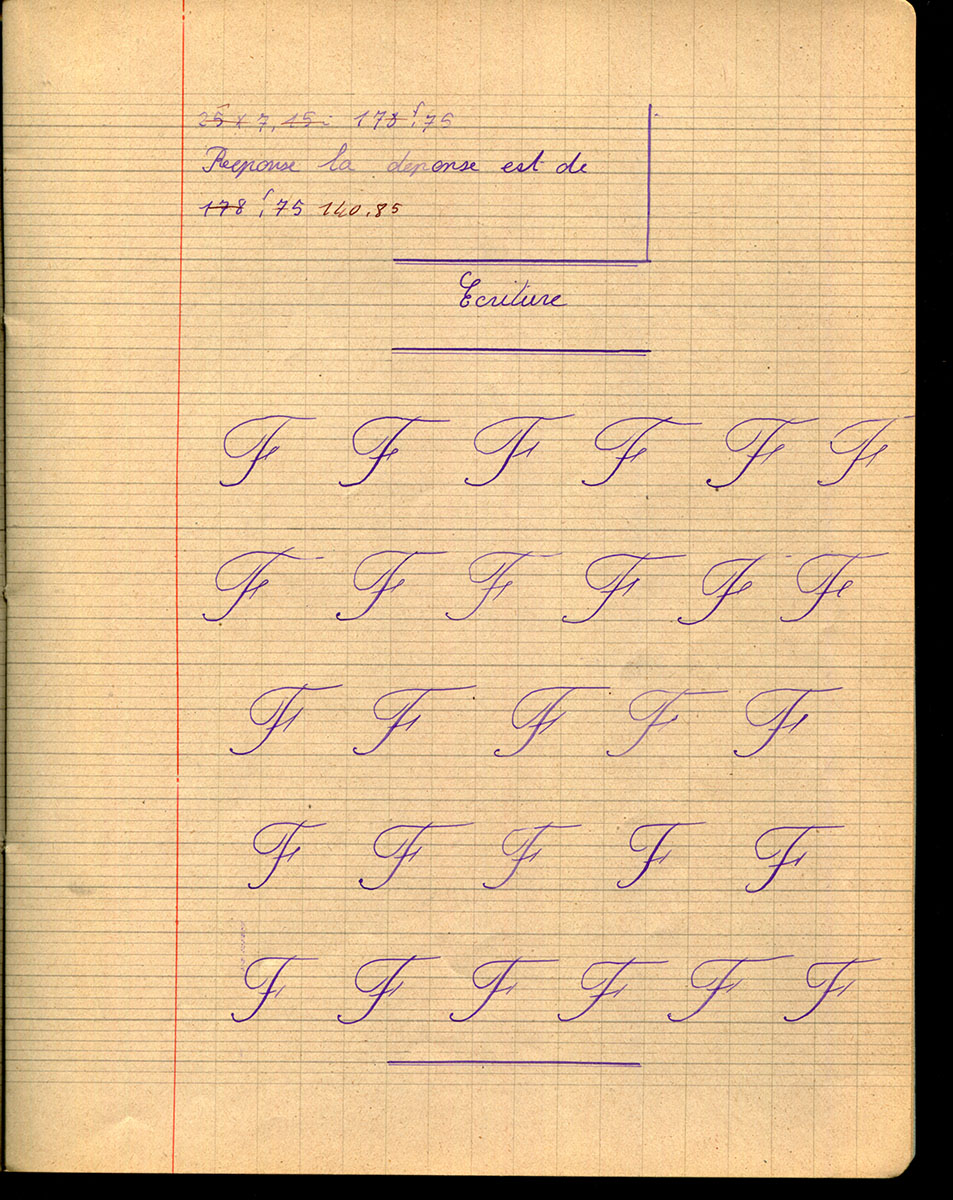 25 x 7,15 = 178f,75
Reponse la depense est de
178f,75 140.85
Ecriture
F F F F F F
F F F F F F
F F F F F
F F F F F
F F F F F F